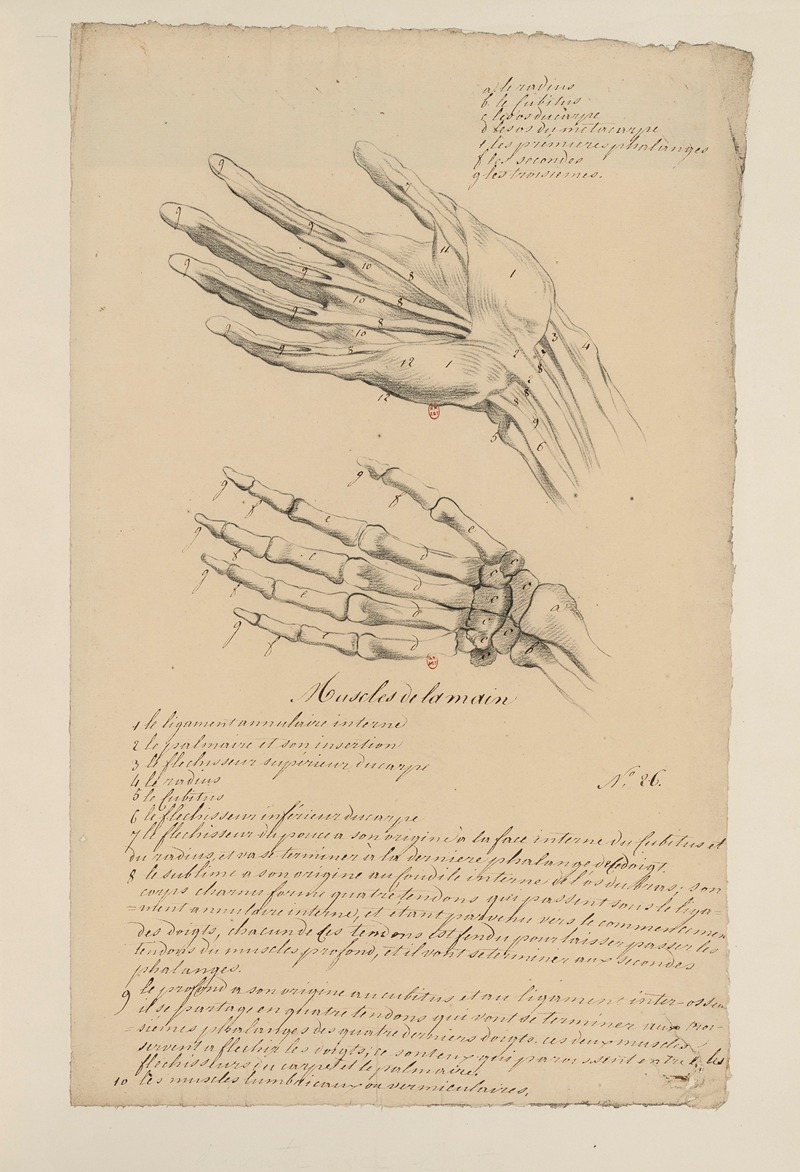 a le radius
b le Cubitus
c les os du carpe
d les os du métacarpe
e les prémieres phalanges
f les secondes
g les troisiemes.
Muscles de la main
1 le ligament annulaire interne
2 le palmaire et son insertion
3 le flechisseur supérieur du carpe
4 le radius
N.° 26.
5 le Cubitus
6 le flechisseur inférieur du carpe
7 le flechisseur du pouce a son origine à la face interne du Cubitus et
du radius, et va se terminer à la derniere phalange de ce doigt.
8 le sublime a son origine au condile interne de l'os du bras; son
corps charnu forme quatre tendons qui passent sous le liga-
=ment annulaire interne, et étant parvenu vers le commencemen
des doigts, chacun de ces tendons est fendu pour laisser passer les
tendons du muscles profond, et il vont se terminer aux secondes
phalanges.
9 le profond a son origine au cubitus et au ligament inter-osseu
il se partage en quatre tendons qui vont se terminer aux troi-
=siemes phalanges des quatre derniers doigts. ces deux muscles
servent a flechir les doigts; ce sont eux qui paroissent entre les
flechisseurs du carpe et le palmaire.
10 les muscles lumbricaux ou vermiculaires.